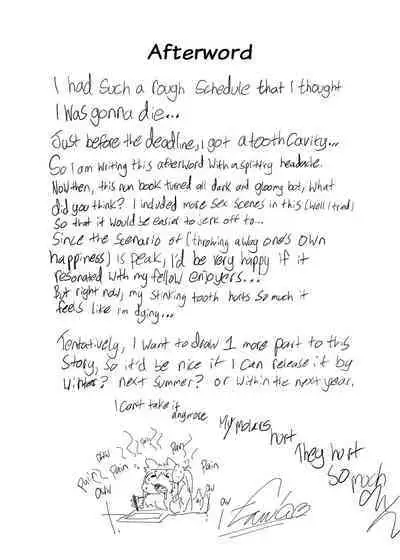 Afterword
I had such a rough schedule that I thought
I was gonna die...
Just before the deadline, I got a tooth cavity...
So I am writing this afterword with a spitting headache.
Now then, this nun book turned all dark and gloomy but, what
did you think? I included more sex scenes in this (well I tried)
so that it would be easier to jerk off to...
Since the scenario of (throwing away one's own
happiness) is peak, I'd be very happy if it
resonated with my fellow enjoyers...
But right now, my stinking tooth hurts so much it
feels like I'm dying...
Tentatively, I want to draw 1 more part to this
story, so it'd be nice if I can release it by
winter? next summer? or within the next year.
I can't take it
anymore
My molars
hurt
They hurt
so much
oww
Pain
oww
Pain
Pain
Pain
oww
ow